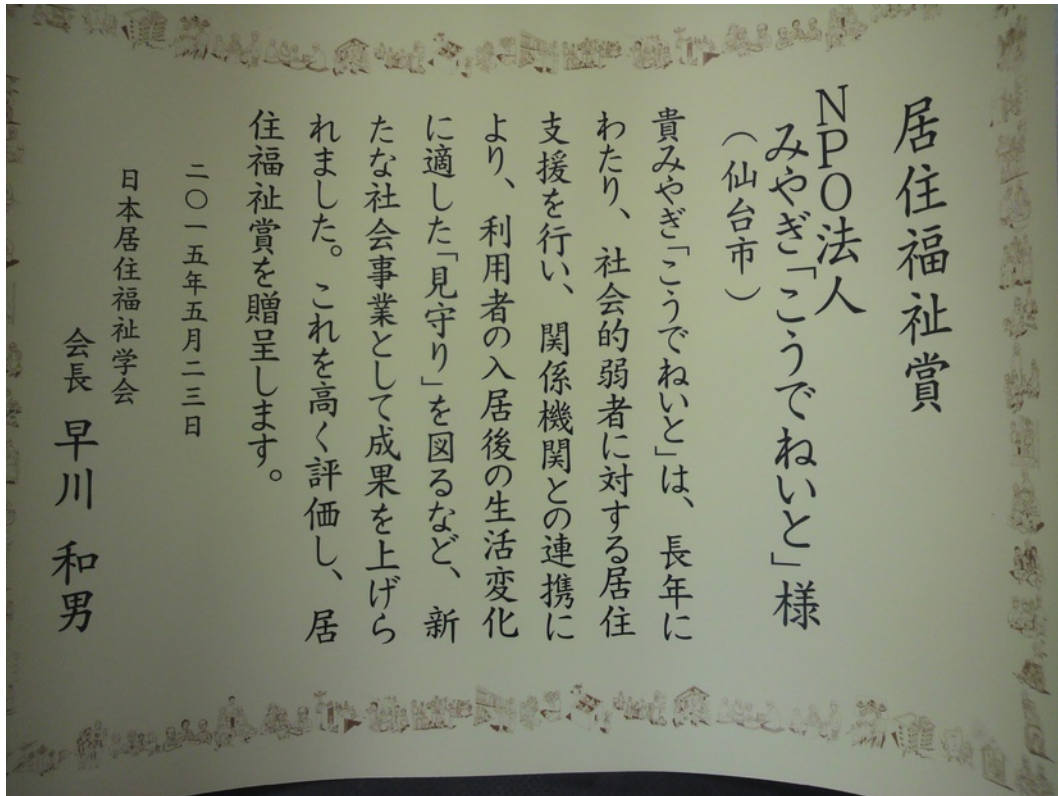 居住福祉賞
NPO法人
みやぎ「こうでねいと」様
（仙台市）
貴みやぎ「こうでねいと」は、長年に
わたり、社会的弱者に対する居住
支援を行い、関係機関との連携に
より、利用者の入居後の生活変化
に適した「見守り」を図るなど、新
たな社会事業として成果を上げら
れました。これを高く評価し、居
住福祉賞を贈呈します。
二〇一五年五月二三日
日本居住福祉学会
会長 早川 和男